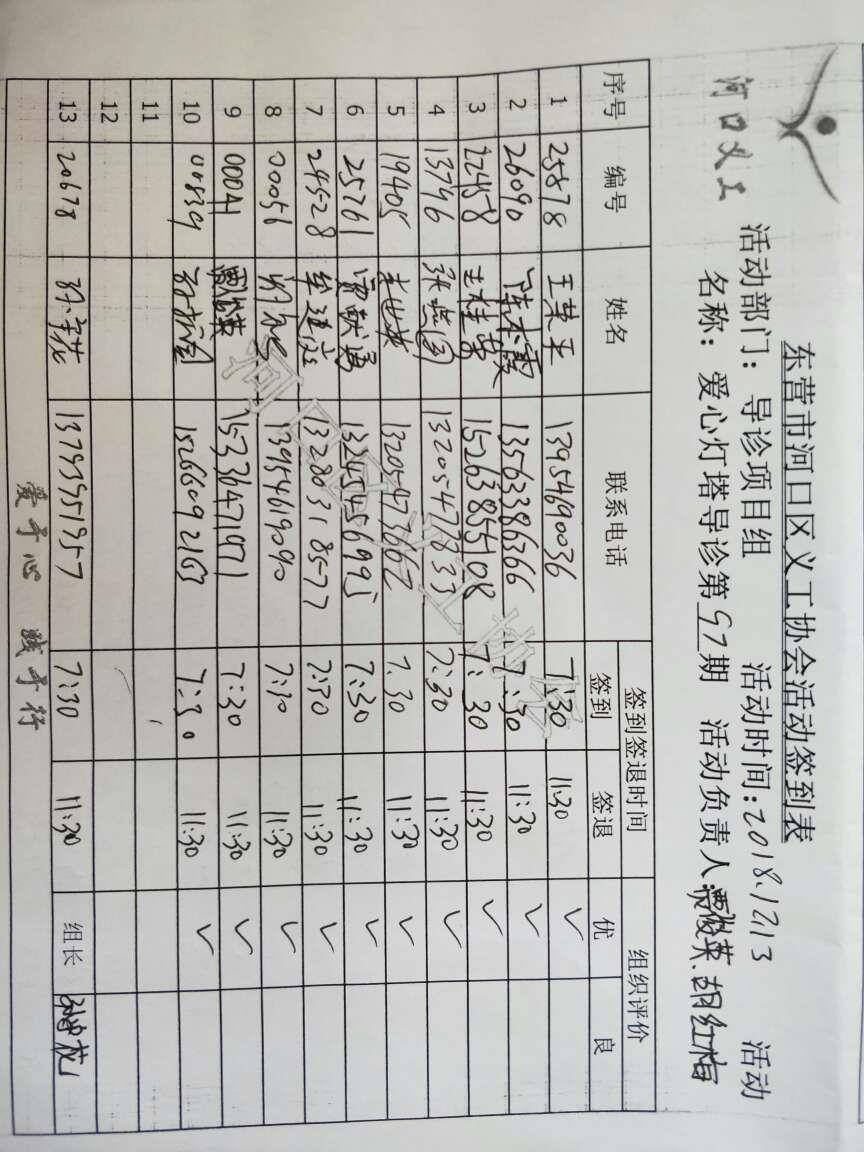 河口义工
东营市河口区义工协会活动签到表
活动部门：导诊项目组 活动时间：2018.12.13 活动
名称：爱心灯塔导诊第97期 活动负责人：贾俊英.胡红梅
序号 编号 姓名 联系电话 签到签退时间 组织评价
签到 签退 优 良
1 25878 王荣平 13954690036 7:30 11:30 ✓
2 26090 陈本霞 13563386366 7:30 11:30 ✓
3 22458 王桂荣 15263855108 7:30 11:30 ✓
4 13746 张燕 13205477833 7:30 11:30 ✓
5 19405 李世英 13205473662 7.30 11:30 ✓
6 25761 雷献通 13245456995 7:30 11:30 ✓
7 24528 13280318577 7:30 11:30 ✓
8 00056 13954619090 7:30 11:30 ✓
9 00041 贾俊英 15336471971 7:30 11:30 ✓
10 00839 15266092163 7:30 11:30 ✓
11
12
13 20678 孙学花 13793951957 7:30 11:30 组长
爱于心 践于行
河口区义工协会